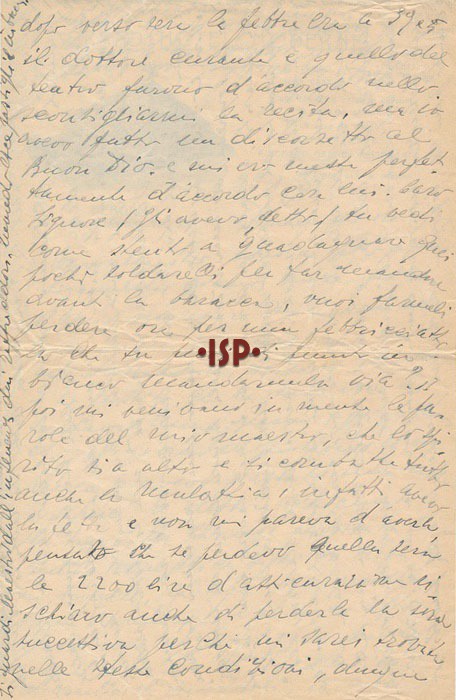 dopo verso sera la febbre era a 39 e 5
il dottore curante e quello del
teatro furono d'accordo nello
sconsigliarmi la recita, ma io
avevo fatto un discorsetto al
Buon Dio. e mi ero messa perfet
tamente d'accordo con Lui. Caro
Signore (gli avevo detto) tu vedi
come stento a guadagnare quei
pochi soldarelli per far mandare
avanti la baracca, vuoi farmeli
perdere ora per una febbriciatto
la che tu puoi in
bianco mandarmela via? E
poi mi venivano in mente le pa
role del mio maestro, che lo spi
rito sia alto e si combatte tutto
anche la malattia; infatti avevo
la febbre e non mi pareva d'averla
pensato che se perdevo quella sera
le 2200 lire d'assicurazione ri
schiavo anche di perderle la sera
successiva perché mi sarei trovata
nelle stesse condizioni, dunque
•ISP•